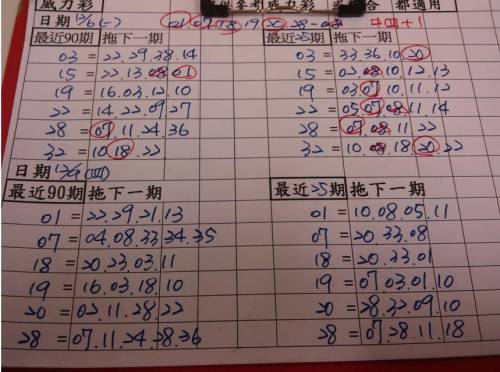 威力彩 供參考威力彩 合 都適用
日期 12/6(一) 01.07.18.19.20.28-08 中四+1
最近90期 拖下一期 最近25期 拖下一期
03 = 22.29.38.14 03 = 33.36.10.20
15 = 22.13.08.01 15 = 02.08.10.12.13
19 = 16.03.12.10 19 = 03.07.10.11.12
22 = 14.22.09.27 22 = 05.07.08.11.14
28 = 07.11.24.36 28 = 07.08.11.22
32 = 10.18.22 32 = 10.08.18.20.22
日期 12/9(四)
最近90期 拖下一期 最近25期 拖下一期
01 = 22.29.21.13 01 = 10.08.05.11
07 = 04.08.33.34.35 07 = 20.33.08
18 = 20.23.03.11 18 = 20.33.01
19 = 16.03.18.10 19 = 07.03.01.10
20 = 02.11.28.22 20 = 28.32.09.10
28 = 07.11.24.38.36 28 = 07.28.11.18